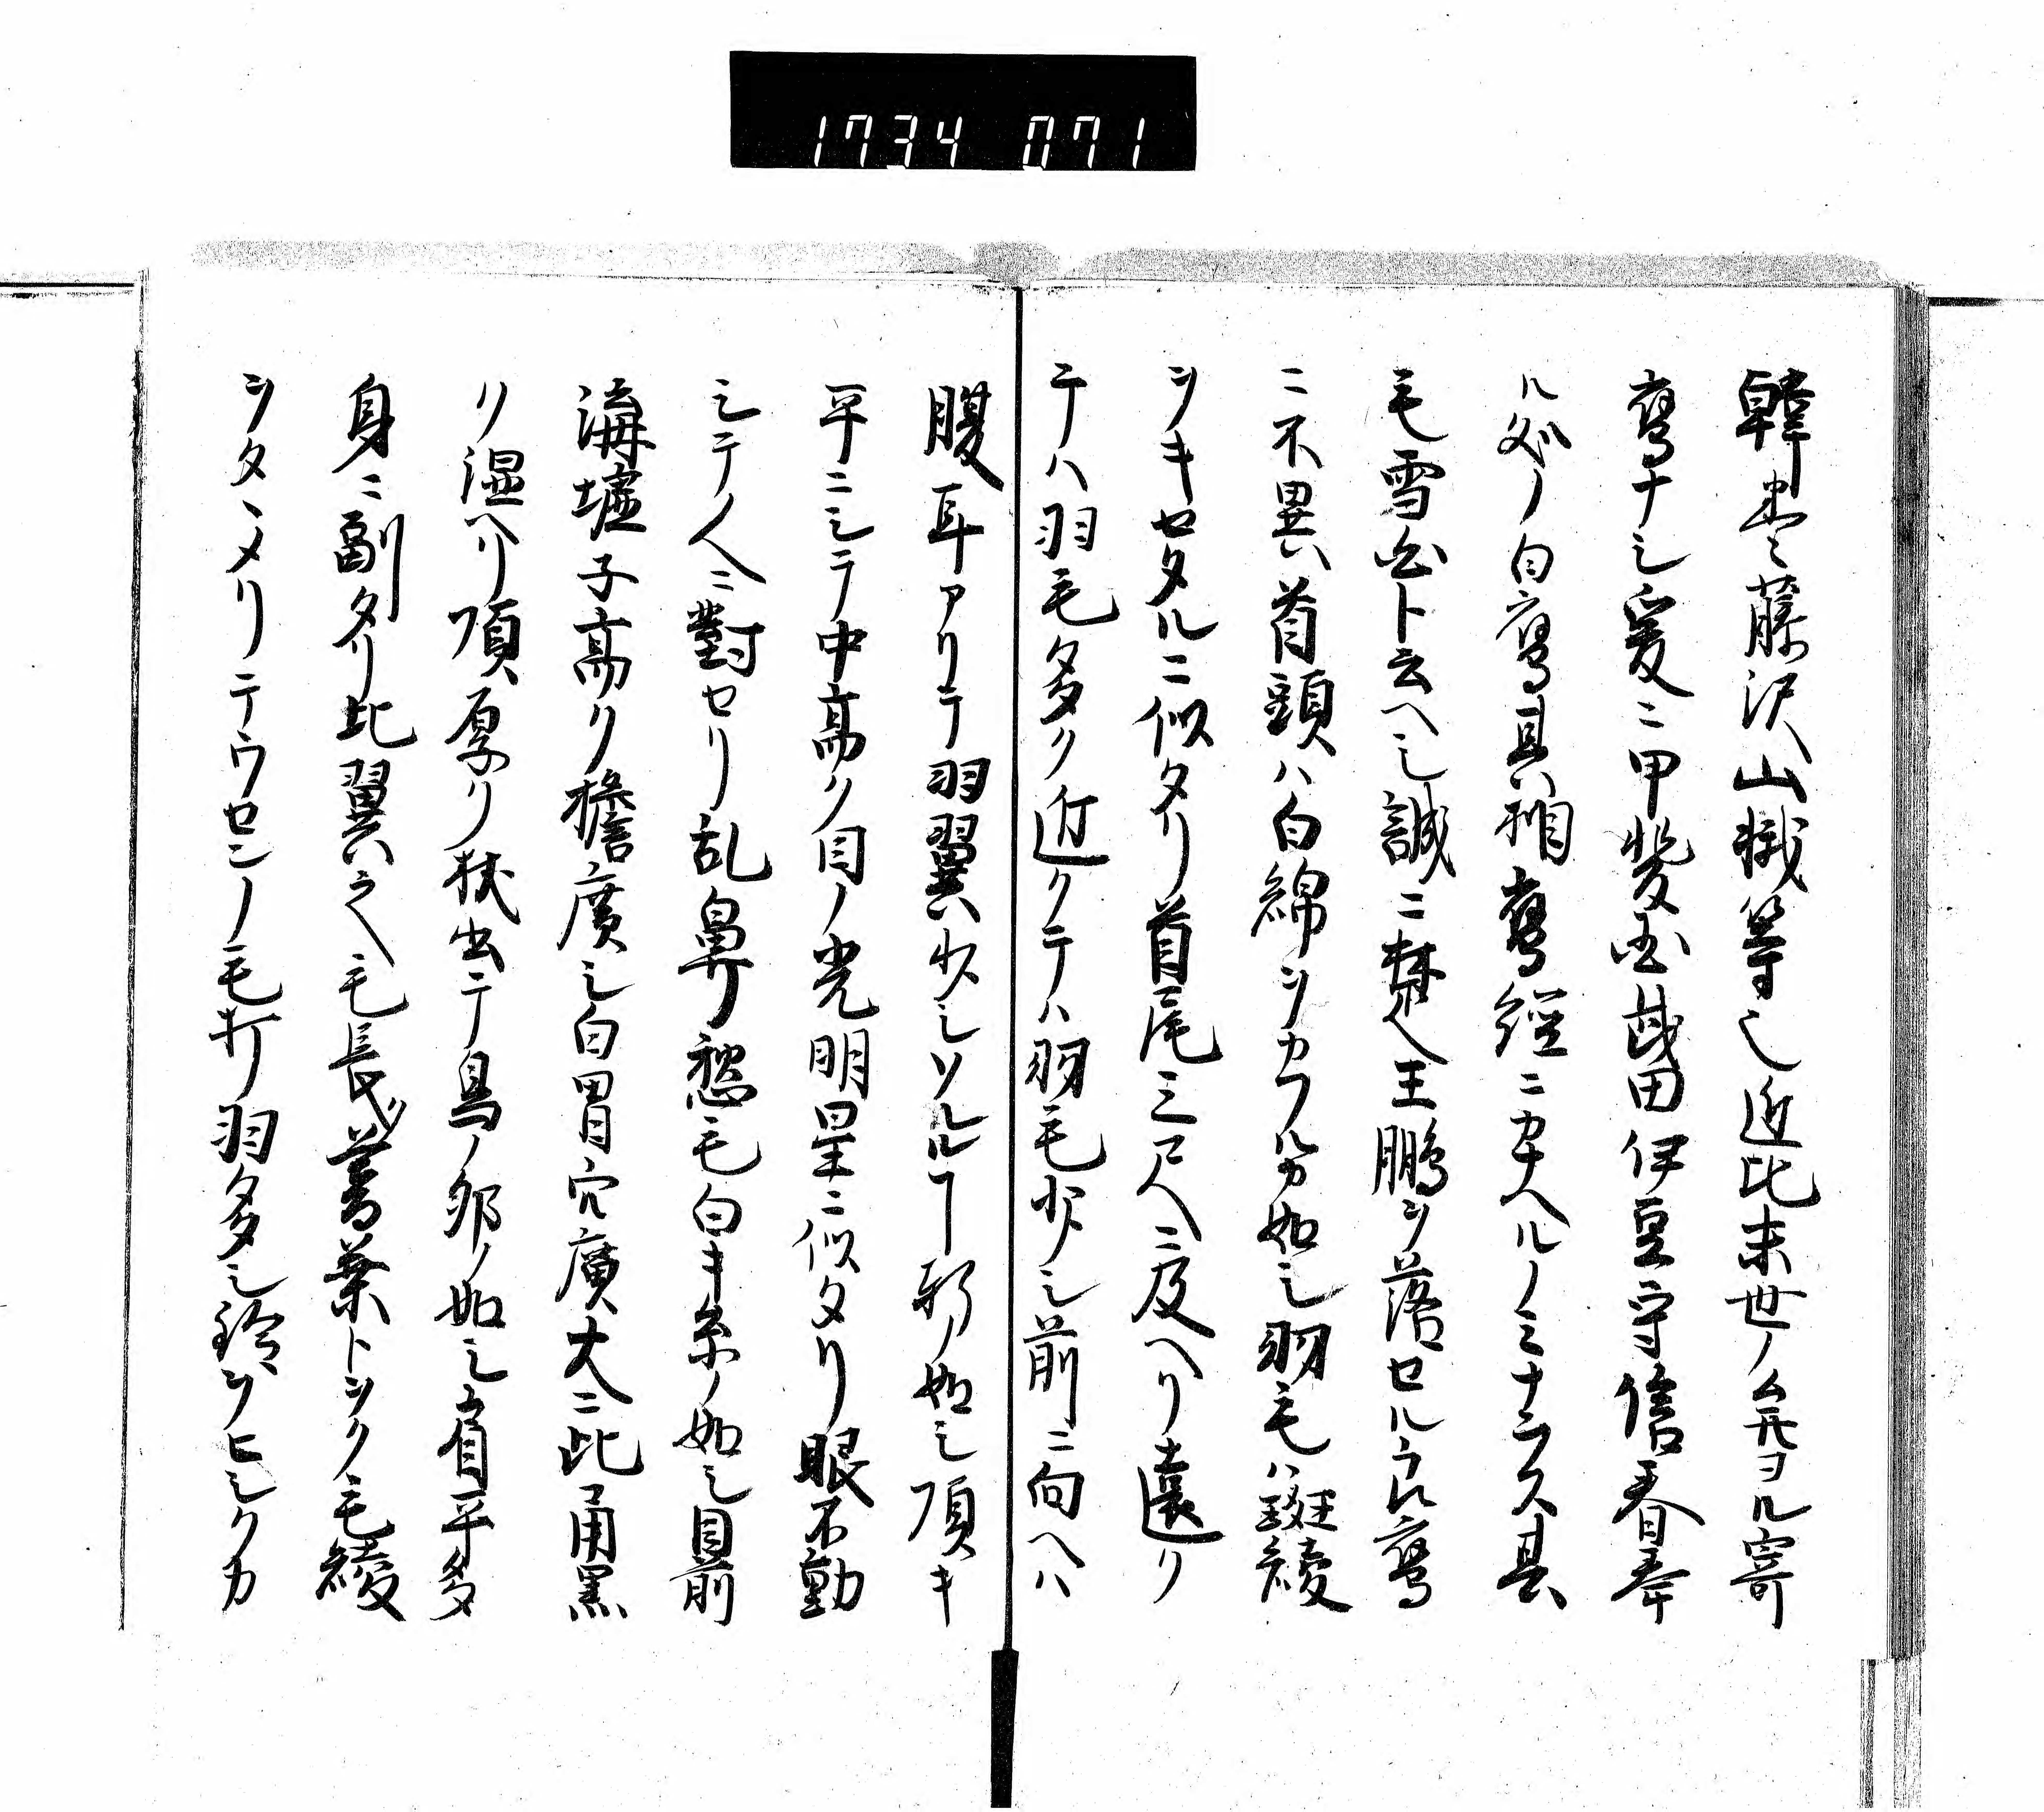 1734 071
韓巻藤沢山幟等也近比末世ノ無ヨル寄
鷹ナシ爰ニ甲斐国武田伊豆守信春奉
ル処ノ白鷹其相鷹経ニカナヘルノミナラス其
毛雪白ト云ヘシ誠ニ楚王鵬ヲ落セル良鷹
ニ不異首頭ハ白綿ヲカフルカ如シ羽毛ハ斑綾
ヲキセタルニ似タリ首尾三尺ニ及ヘリ遠ク
テハ羽毛多ク近クテハ羽毛少シ前ニ向ヘハ
腹耳アリテ羽翼少シソルルヿ 如シ頂キ
平ニシテ中高ク目ノ光明星ニ似タリ眼不動
シテ人ニ對セリ乱鼻愁毛白キ糸ノ如シ目前
海墟子高ク檐廣シ白胃穴廣大ニ此 黒
リ湿ヘリ項厚ク 出テ鳥ノ卵ノ如シ肩平多
身ニ副タリ比翼之毛長ク蓍葉トシク毛綾
シタヽメリテウセンノ毛打羽多シ鈴ヲヒシクカ